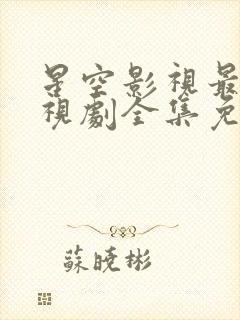 星空影視最
視劇全集免
蘇曉彬